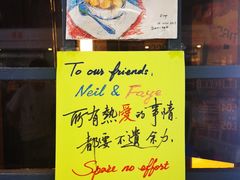 To our friends,
Neil & Faye
所有熱愛的事情
都要不遺余力
Spare no effort